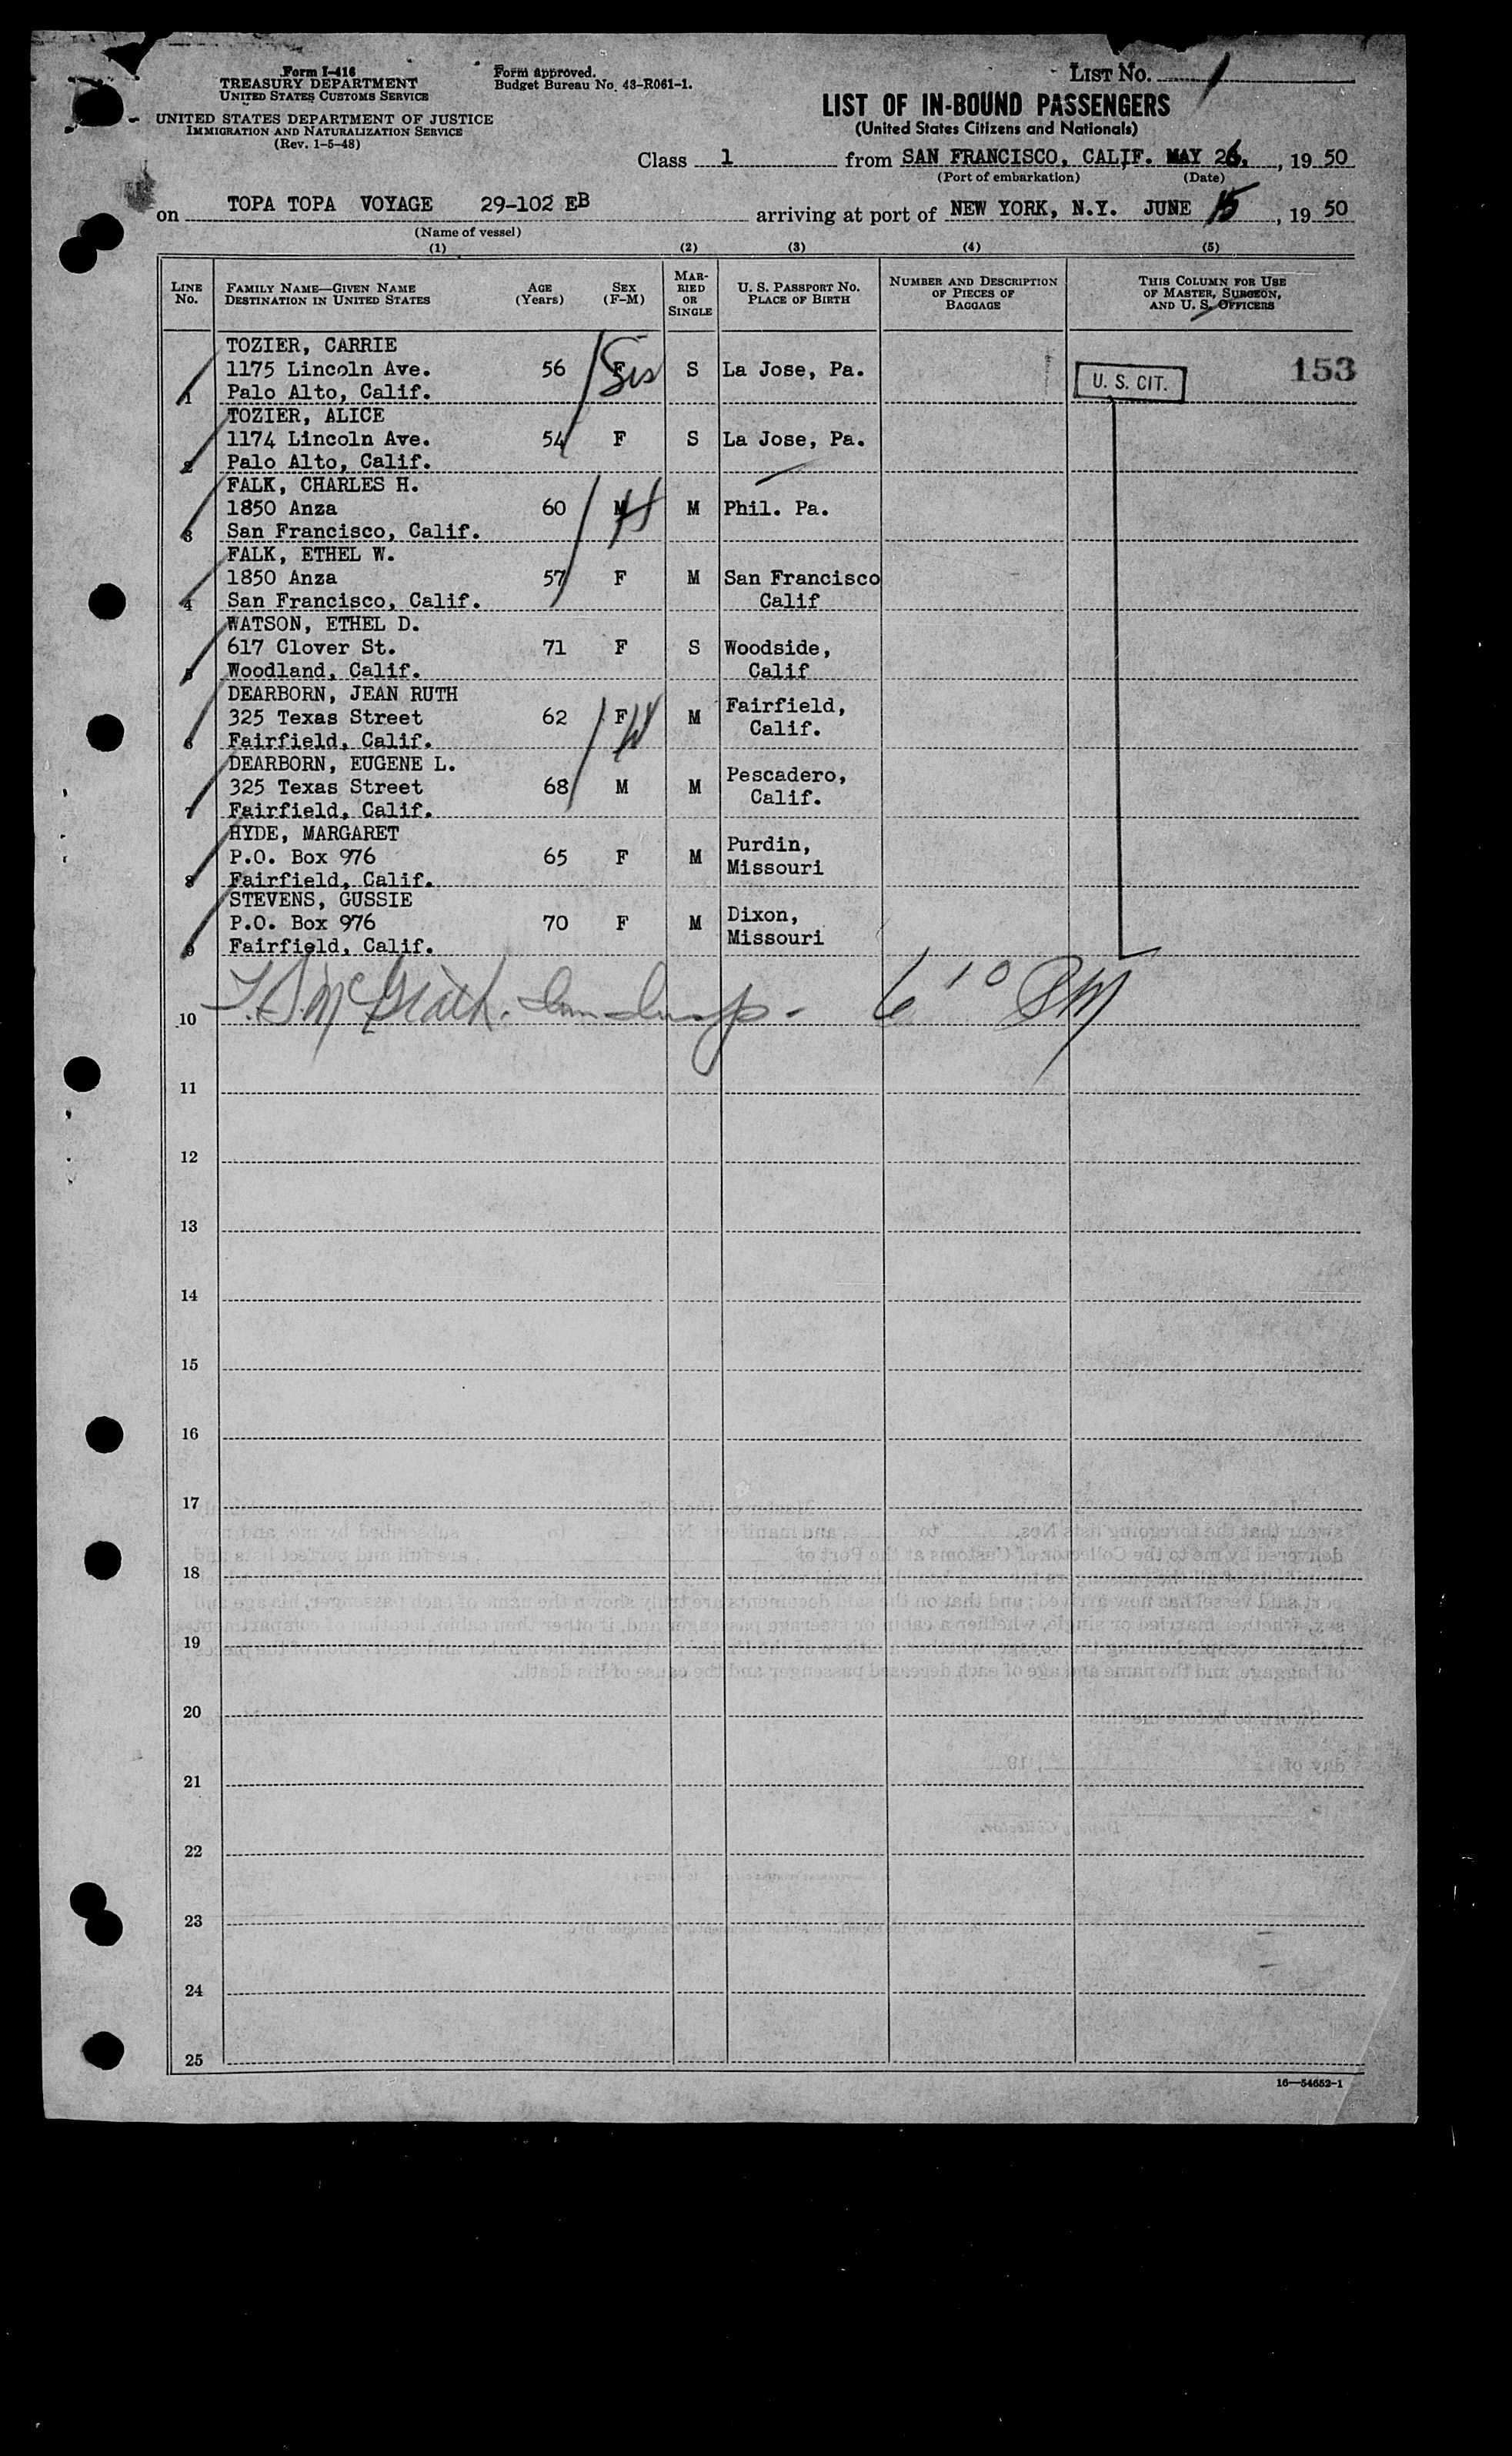 Form I-416
TREASURY DEPARTMENT
UNITED STATES CUSTOMS SERVICE
UNITED STATES DEPARTMENT OF JUSTICE
IMMIGRATION AND NATURALIZATION SERVICE
(Rev. 1-5-48)
Form approved.
Budget Bureau No. 43-R061-1.
LIST NO. 1
LIST OF IN-BOUND PASSENGERS
(United States Citizens and Nationals)
Class 1 from SAN FRANCISCO, CALIF. MAY 26, , 19 50
(Port of embarkation) (Date)
on TOPA TOPA VOYAGE 29-102 EB arriving at port of NEW YORK, N.Y. JUNE 15 , 19 50
(Name of vessel)
(1) (2) (3) (4) (5)
LINE No. FAMILY NAME—GIVEN NAME DESTINATION IN UNITED STATES AGE (Years) SEX (F-M) MARRIED OR SINGLE U. S. PASSPORT NO. PLACE OF BIRTH NUMBER AND DESCRIPTION OF PIECES OF BAGGAGE THIS COLUMN FOR USE OF MASTER, SURGEON, AND U. S. OFFICERS
TOZIER, CARRIE
1175 Lincoln Ave. 56 F Sis S La Jose, Pa. U. S. CIT. 153
1 Palo Alto, Calif.
TOZIER, ALICE
1174 Lincoln Ave. 54 F S La Jose, Pa.
2 Palo Alto, Calif.
FALK, CHARLES H.
1850 Anza 60 M H M Phil. Pa.
3 San Francisco, Calif.
FALK, ETHEL W.
1850 Anza 57 F M San Francisco
4 San Francisco, Calif. Calif
WATSON, ETHEL D.
617 Clover St. 71 F S Woodside,
5 Woodland, Calif. Calif
DEARBORN, JEAN RUTH
325 Texas Street 62 F W M Fairfield,
6 Fairfield, Calif. Calif.
DEARBORN, EUGENE L.
325 Texas Street 68 M M Pescadero,
7 Fairfield, Calif. Calif.
HYDE, MARGARET
P.O. Box 976 65 F M Purdin,
8 Fairfield, Calif. Missouri
STEVENS, GUSSIE
P.O. Box 976 70 F M Dixon,
9 Fairfield, Calif. Missouri
10 McGrath. 6 10 PM
11
12
13
14
15
16
17
18
19
20
21
22
23
24
25
16—54652-1